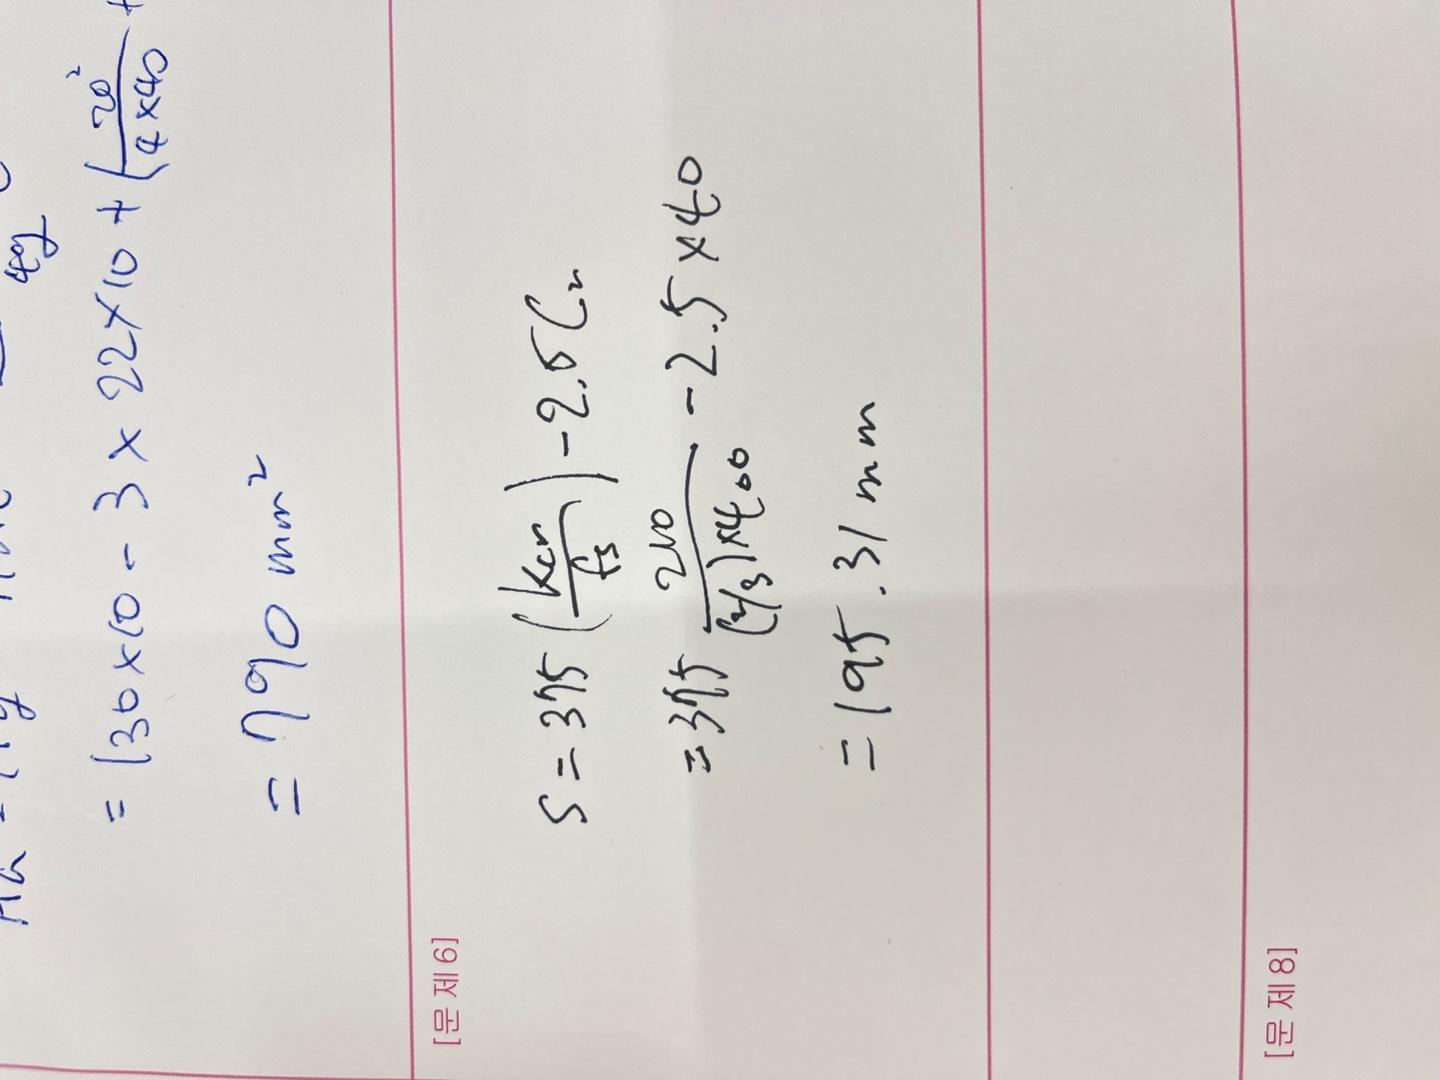 = (30×10 - 3 × 22×10 + (20² / 4×40
= 790 mm²
[문 제 6]
S = 375 (kcr / fs) - 2.5Cc
= 375 210 / (2/3)×400 - 2.5 ×40
= 195.31 mm
[문 제 8]